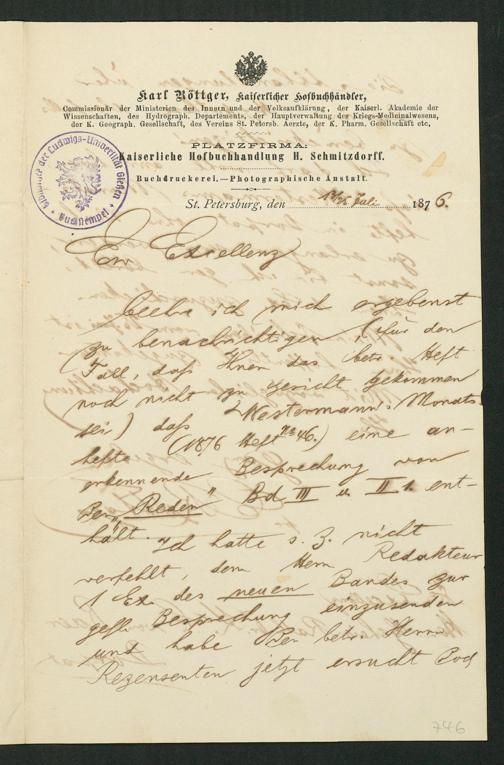 Karl Röttger, Kaiserlicher Hofbuchhändler,
Commissionär der Ministerien des Innern und der Volksaufklärung, der Kaiserl. Akademie der
Wissenschaften, des Hydrograph. Departements, der Hauptverwaltung des Kriegs-Medicinalwesens,
der K. Geograph. Gesellschaft, des Vereins St. Petersb. Aerzte, der K. Pharm. Gesellschaft etc.
PLATZFIRMA:
Kaiserliche Hofbuchhandlung H. Schmitzdorff.
Buchdruckerei.—Photographische Anstalt.
Ludwigs-Universität Gießen
Buchstempel
St. Petersburg, den Juli 1876.
Ew Excellenz
beehre ich mich ergebenst
zu benachrichtigen, (für den
Fall, daß Ihnen das betr. Heft
noch nicht zu Gesicht gekommen
sei) daß Westermann's Monats
hefte (1876 Heft 46.) eine an-
erkennende Besprechung von
"Reden" Bd III u II 1. ent-
hält. Ich hatte s. Z. nicht
verfehlt, dem Herrn Redakteur
1 Ex. des neuen Bandes zur
gefl. Besprechung einzusenden
und habe den betr. Herrn
Rezensenten jetzt ersucht
746